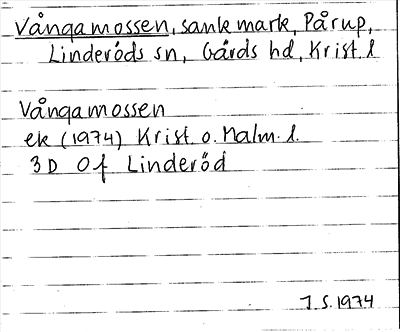 Vångamossen, sank mark, Pårup,
Linderöds sn, Gärds hd, Krist. l
Vångamossen
ek (1974) Krist. o. Malm. l.
3D 0f Linderöd
J.S. 1974